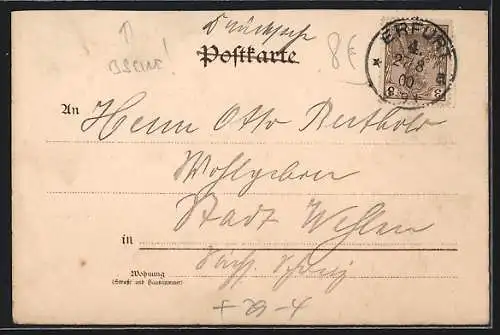 Drucksache
Postkarte
8€
BSEITE!
ERFURT
4
27/8
00
3 3
An Herrn Otto Berthold
Wohlgeboren
Stadt Wehlen
in Sächs. Schweiz
Wohnung
(Straße und Hausnummer)